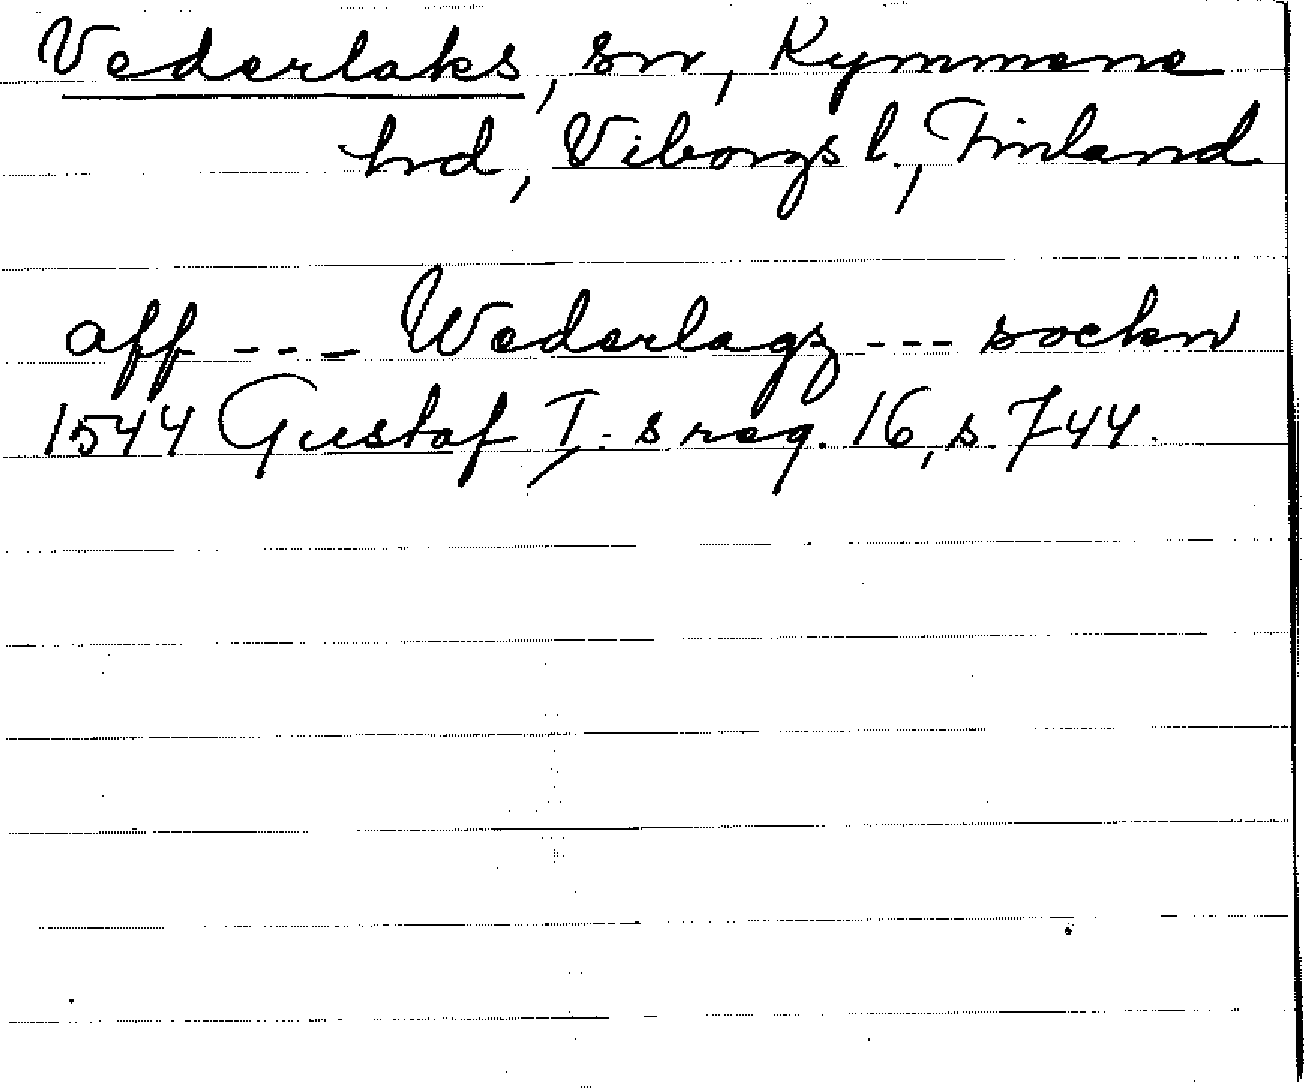 Vederlaks, sn, Kymmene
hd, Viborgs l., Finland
aff --- Wederlagz --- sockn
1544 Gustaf I:s reg. 16, s. 744.